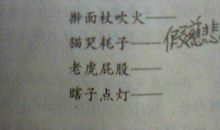 擀面杖吹火——
猫哭耗子——假慈悲
老虎屁股——
瞎子点灯——